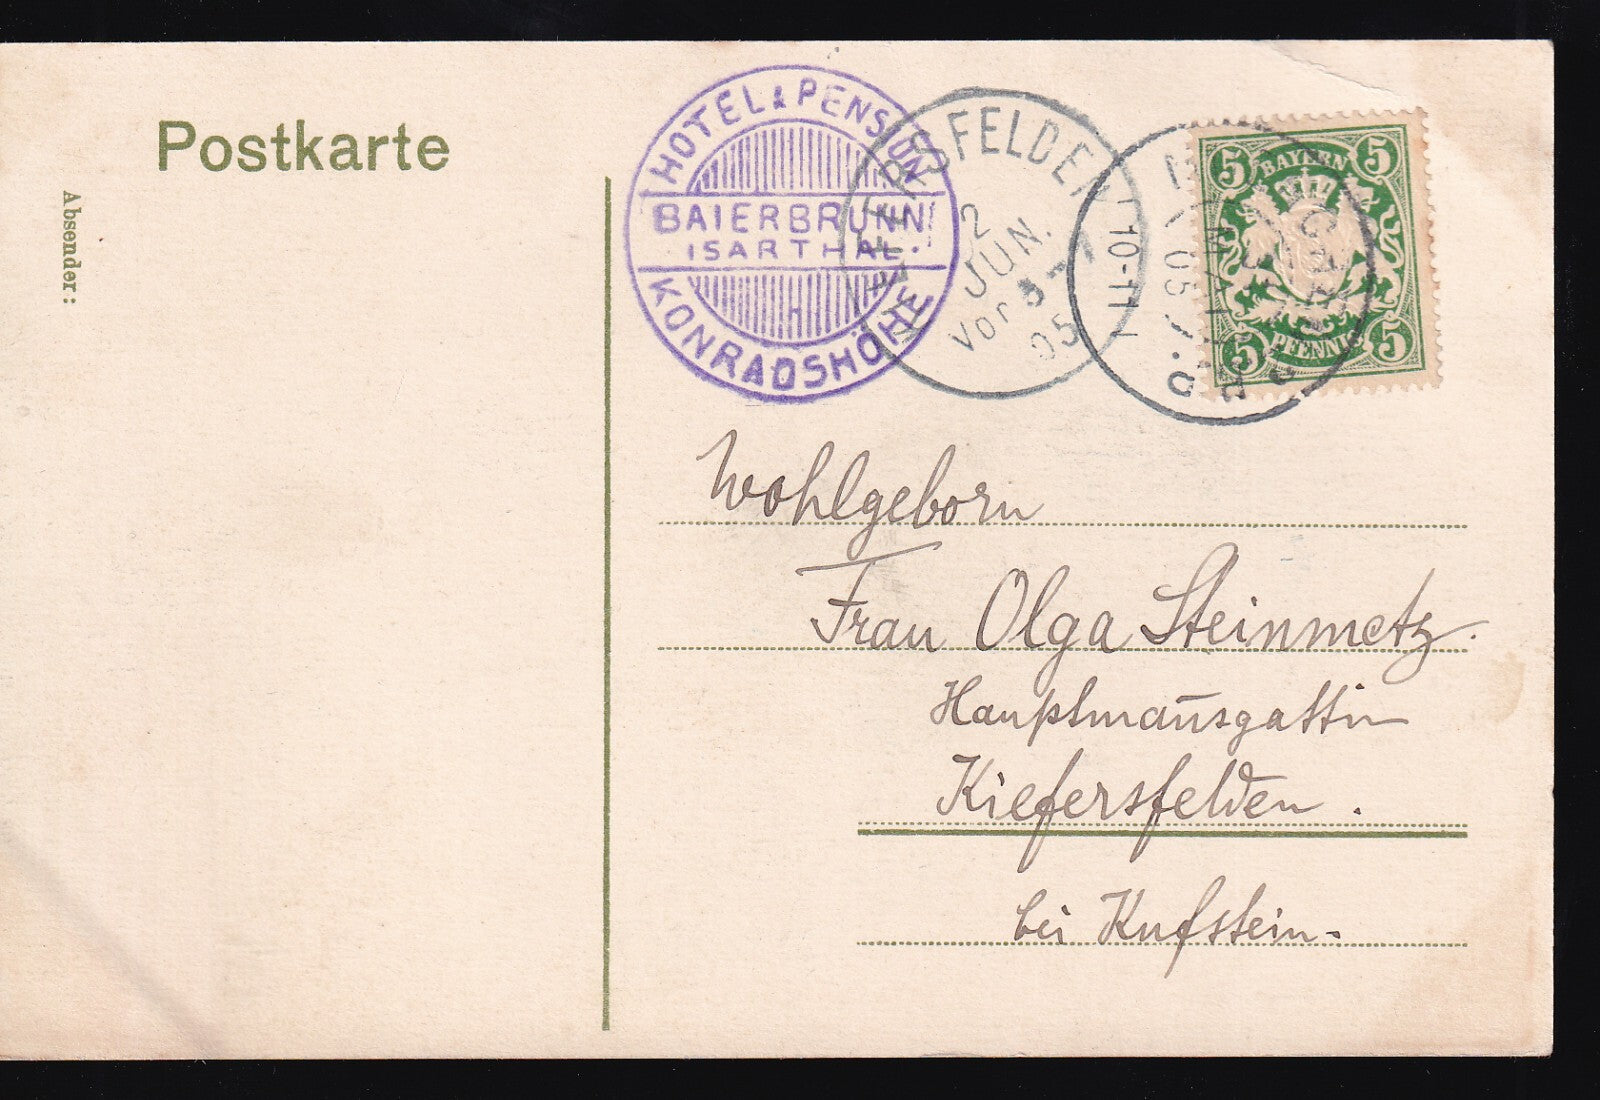 Postkarte
Absender:
HOTEL & PENSION
BAIERBRUNN
ISARTHAL.
KONRADSHÖHE
KIEFERSFELDEN
2
JUN.
Vor
05
10-11
05
BAYERN
5 5
5 5
PFENNIG
Wohlgeborn
Frau Olga Steinmetz.
Hauptmannsgattin
Kiefersfelden.
bei Kufstein.